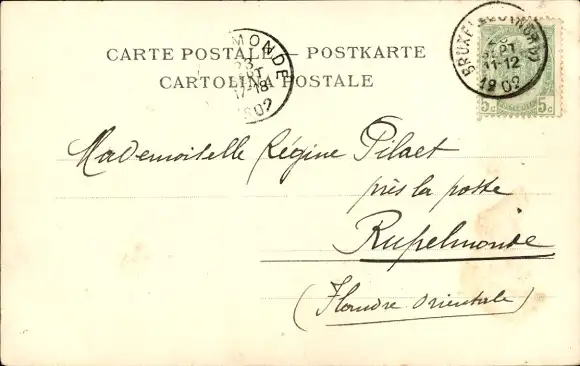 CARTE POSTALE — POSTKARTE
CARTOLINA POSTALE
MONDE
23
SEPT
17-18
1902
BRUXELLES (NORD)
SEPT
11-12
1902
5c 5c
Mademoiselle Régine Pilaet
près la poste
Rupelmonde
(Flandre Orientale)